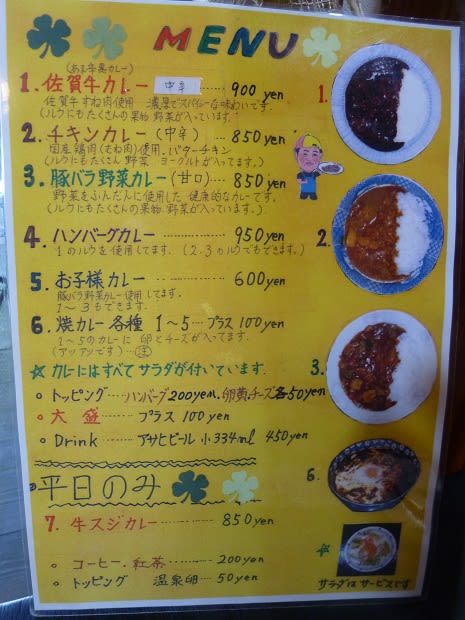 MENU
(あま辛黒カレー)
1. 佐賀牛カレー 中辛 …… 900 yen
佐賀牛すね肉使用 濃厚でスパイシーな味わいです。
(ルウにもたくさんの果物 野菜が入っています。)
2. チキンカレー (中辛) …… 850 yen
国産鶏肉(もも肉)使用、バターチキン
(ルウにもたくさん野菜 ヨーグルトが入ってます。)
3. 豚バラ野菜カレー (甘口)… 850 yen
野菜をふんだんに使用した健康的なカレーです。
(ルウにもたくさんの果物 野菜が入っています。)
4. ハンバーグカレー …… 950 yen
1のルウを使用してます。(2.3のルウでもできます。)
5. お子様カレー …… 600 yen
豚バラ野菜カレー使用してます。
1〜3もできます。
6. 焼カレー各種 1〜5… プラス 100 yen
1〜5のカレーに 卵とチーズが入ってます。
(アツアツです)… 注
☆ カレーにはすべてサラダが付いています。
○ トッピング …… ハンバーグ200yen. 卵黄.チーズ各50yen
○ 大盛 …… プラス 100 yen
○ Drink …… アサヒビール 小334ml 450yen
平日のみ
7. 牛スジカレー …… 850 yen
○ コーヒー.紅茶 …… 200 yen
○ トッピング 温泉卵… 50 yen
1.
2.
3.
6.
☆
サラダはサービスです